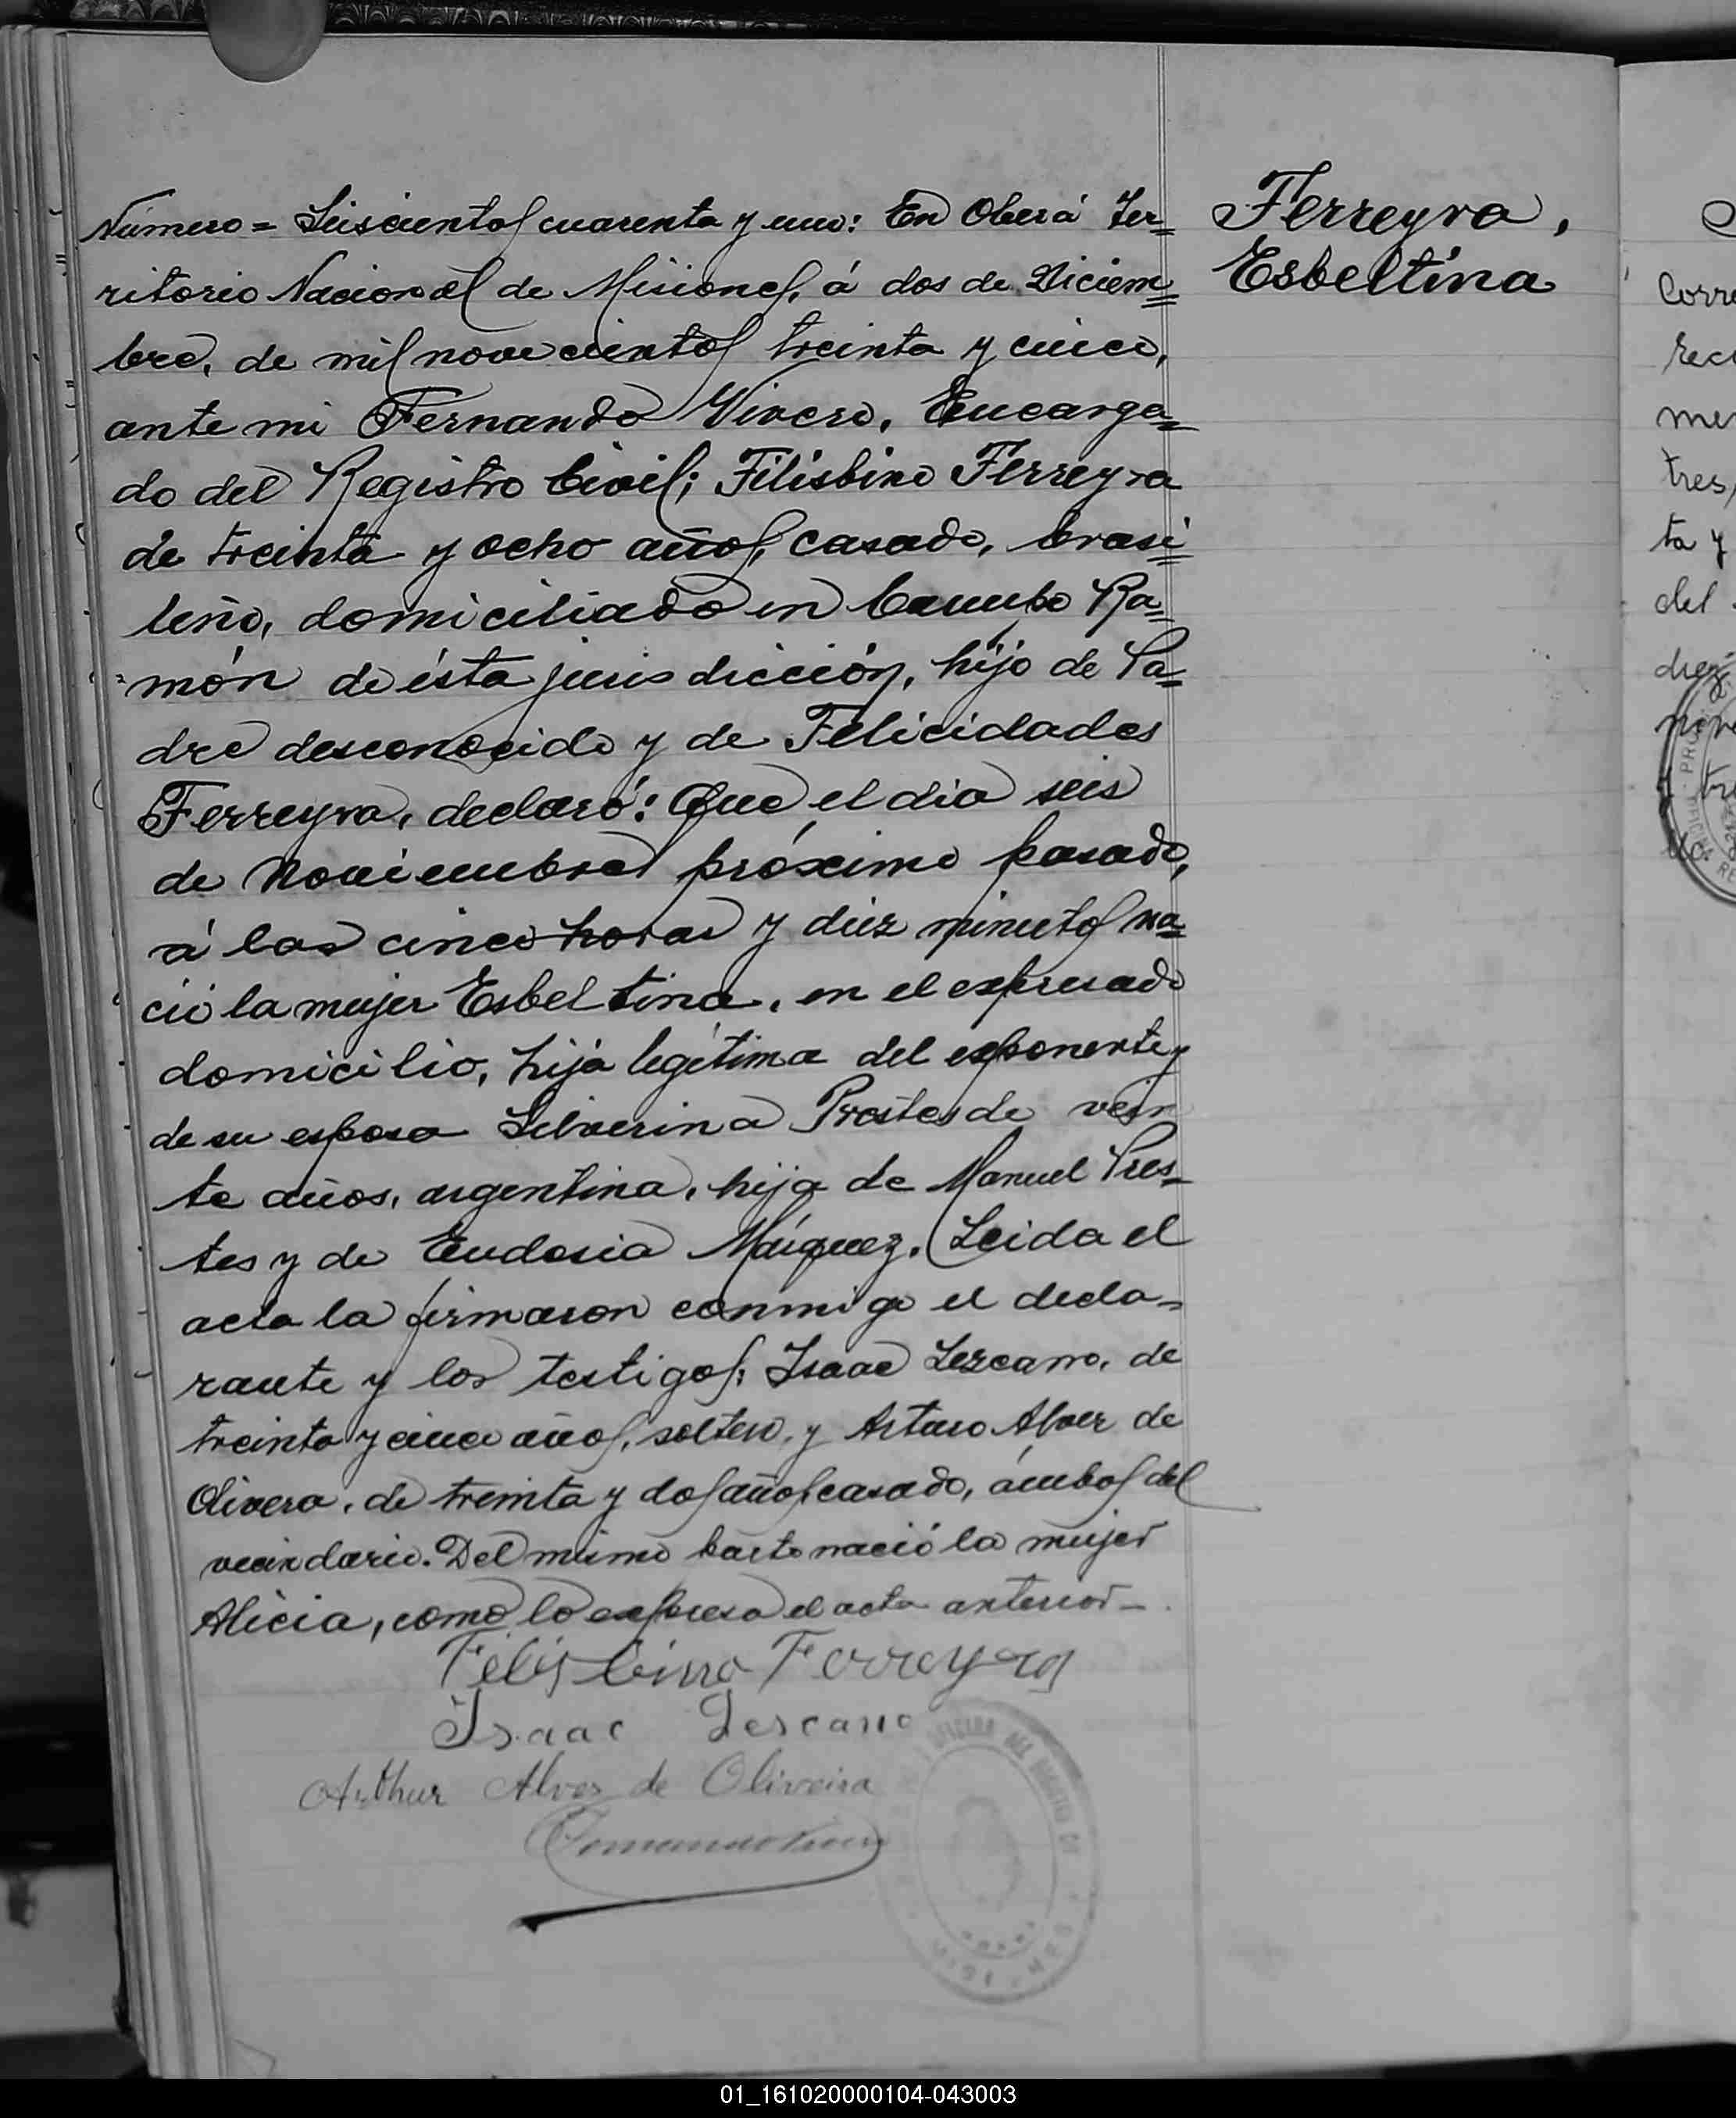 Número = Seiscientos cuarenta y uno: En Oberá Ter=
ritorio Nacional de Misiones, á dos de Diciem=
bre, de mil novecientos treinta y cinco,
ante mi Fernando Vivero, Encarga=
do del Registro Civil; Filisbino Ferreyra
de treinta y ocho años, casado, brasi=
leño, domiciliado en Campo Ra=
món de ésta jurisdicción, hijo de Pa=
dre desconocido y de Felicidades
Ferreyra, declaró: Que el dia seis
de Noviembre próximo pasado,
á las cinco horas y diez minutos na=
ció la mujer Esbeltina, en el expresado
domicilio, hija legítima del exponente y
de su esposa Silverina Prestes de vein
te años, argentina, hija de Manuel Pres=
tes y de Eudosia Máiquez. Leida el
acta la firmaron conmigo el decla=
rante y los testigos: Isaac Lezcano, de
treinta y cinco años, soltero, y Arturo Alvez de
Olivera, de treinta y dos años, casado, ámbos del
vecindario. Del mismo parto nació la mujer
Alicia, como lo expresa el acta anterior-
Filisbino Ferreyra
Isaac Lescano
Arthur Alves de Oliveira
Ferreyra,
Esbeltina
Corre
tres,
ta y
del
01_161020000104-043003